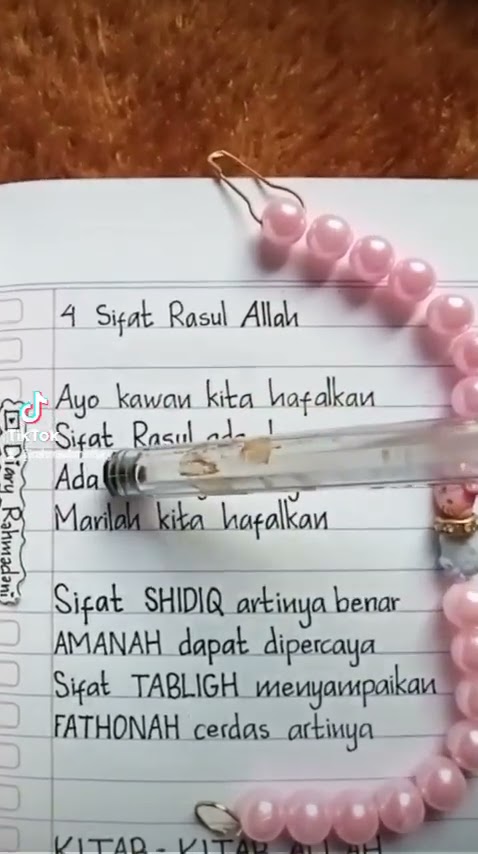 4 Sifat Rasul Allah
Ayo kawan kita hafalkan
Sifat Rasul
Ada
Marilah kita hafalkan
Sifat SHIDIQ artinya benar
AMANAH dapat dipercaya
Sifat TABLIGH menyampaikan
FATHONAH cerdas artinya
KITAB - KITAB ALLAH
TikTok
Diary Rahmadani